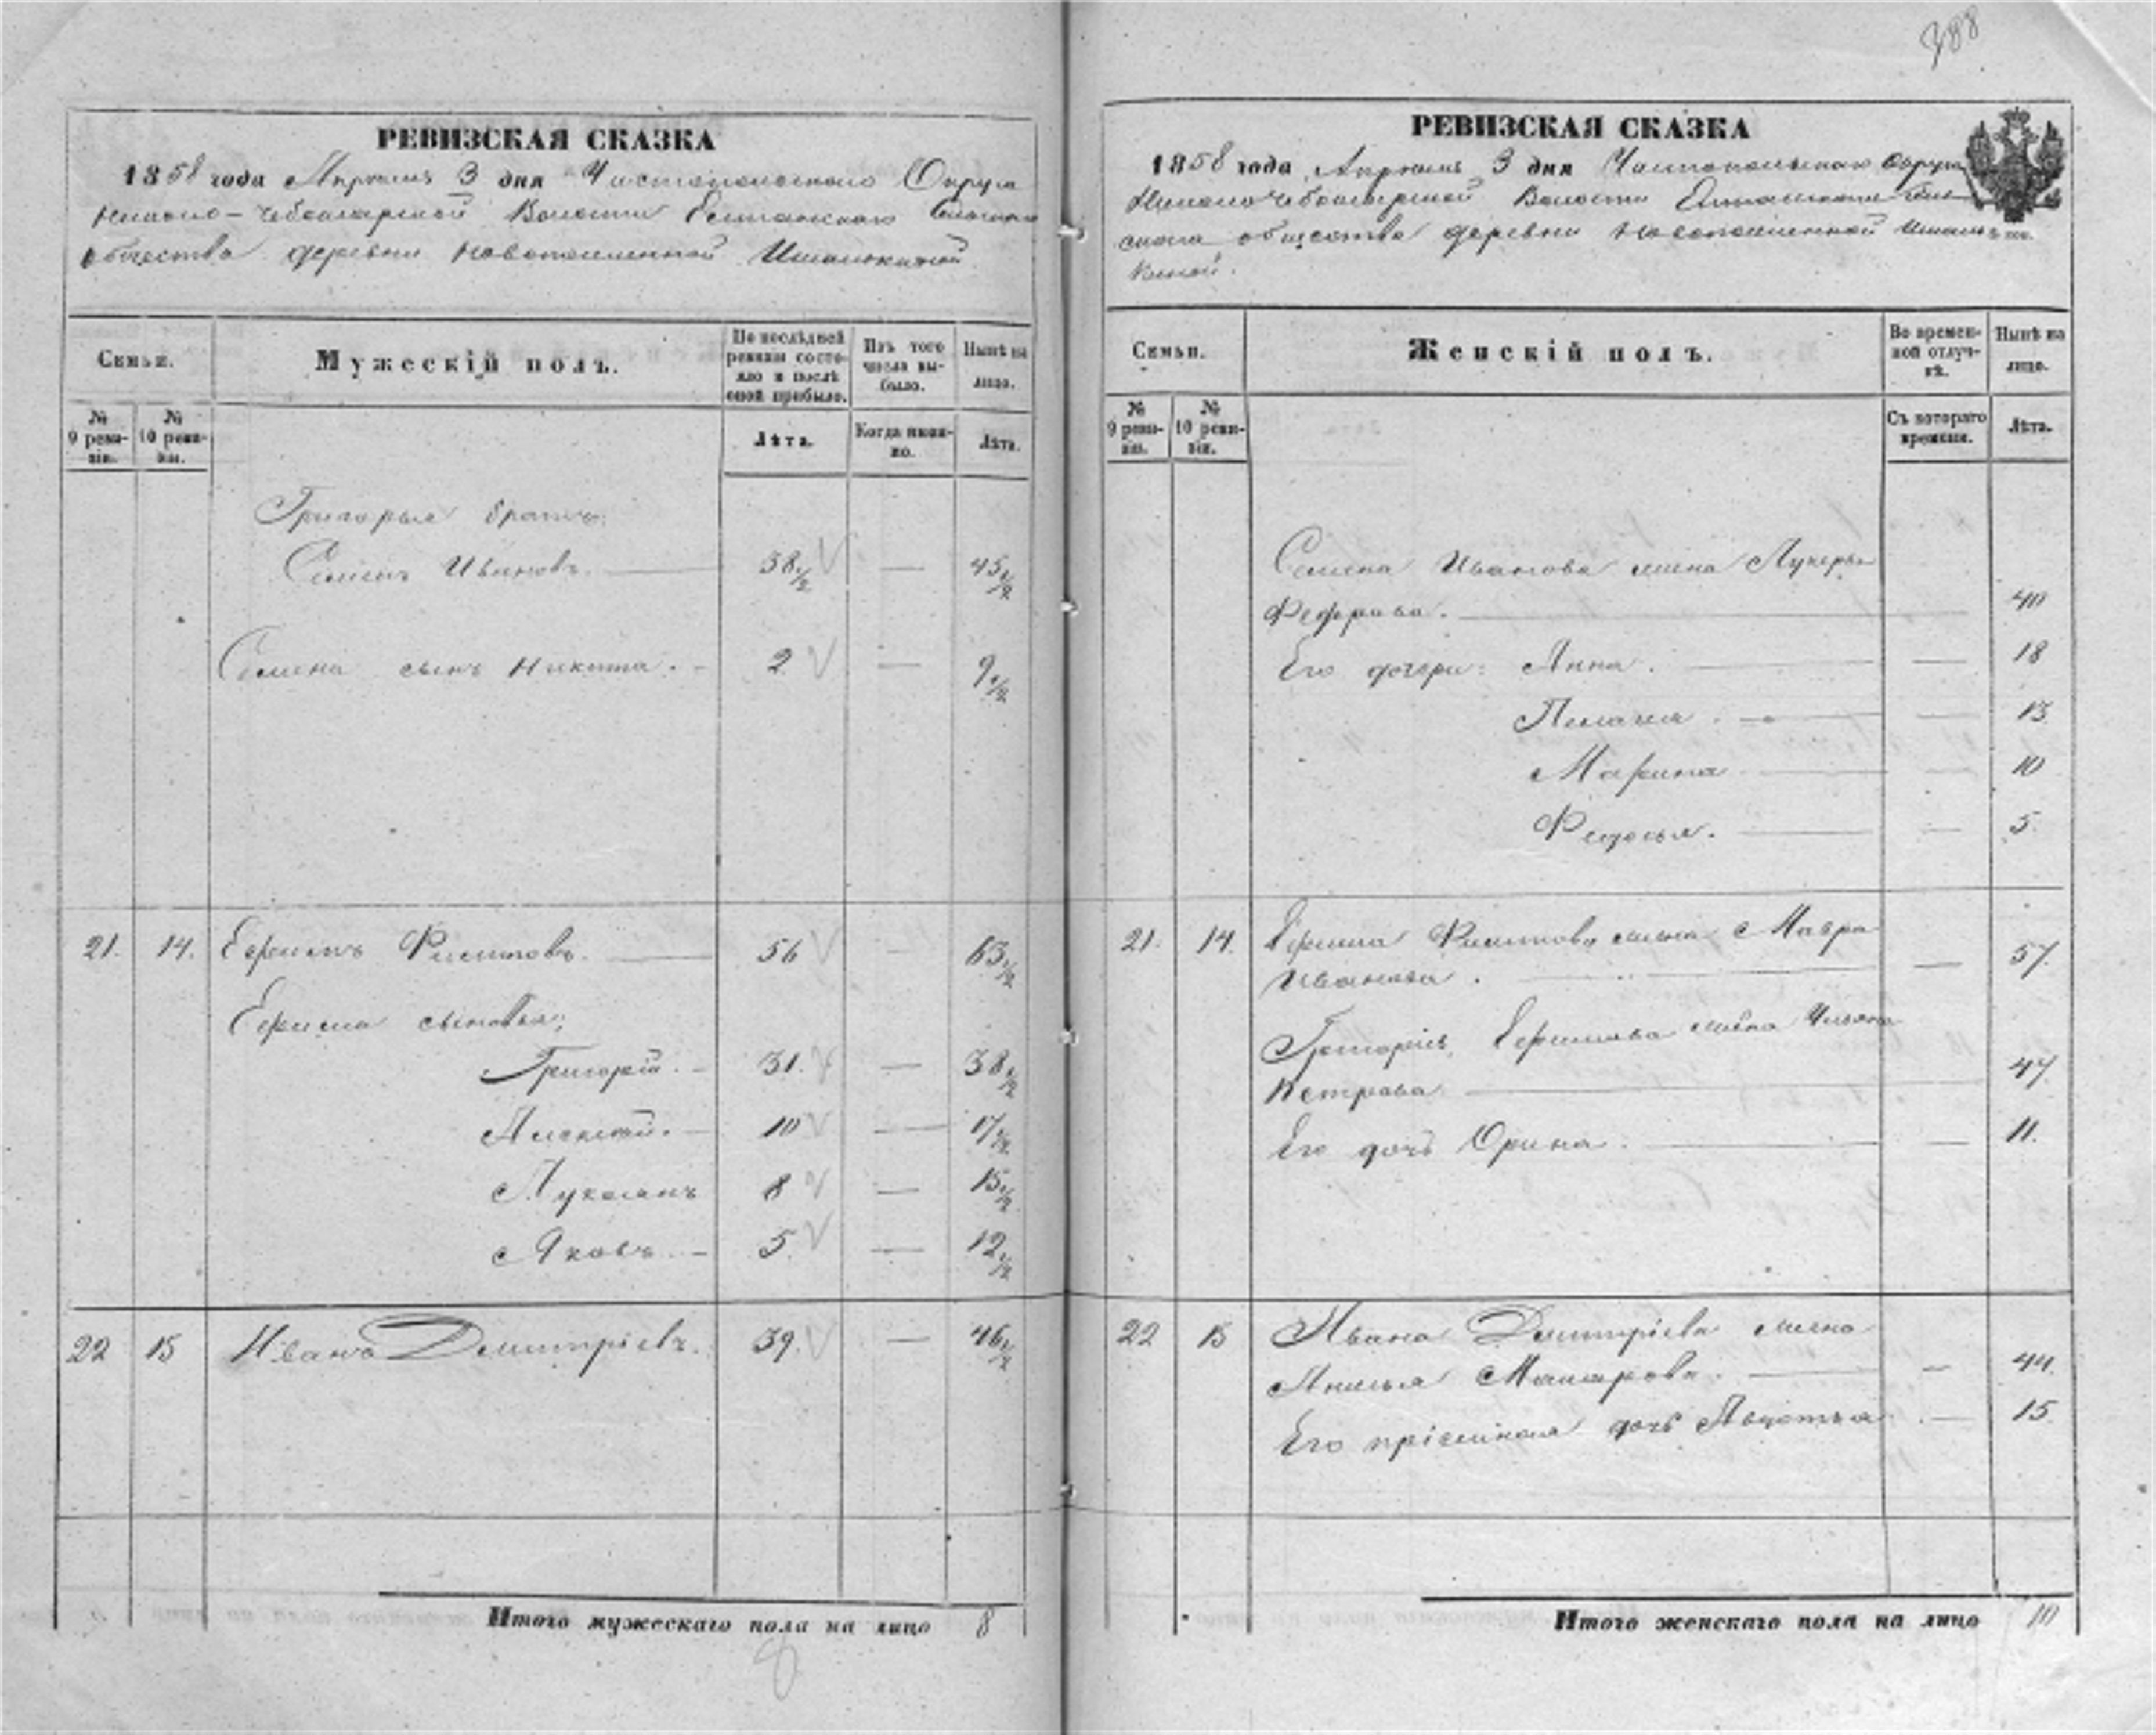 РЕВИЗСКАЯ СКАЗКА
1858 года Апреля 3 дня Чистопольского Округа
Волости
общества деревни Новопоселенной
Семьи.
Мужескій полъ.
По послѣдней ревизіи состояло и послѣ оной прибыло.
Изъ того числа выбыло.
Нынѣ на лицо.
№ 9 ревизіи.
№ 10 ревизіи.
Лѣта.
Когда именно.
Лѣта.
Григорья братъ:
Семенъ Ивановъ. 38 1/2 — 45 1/2
Семена сынъ Никита. 2 — 9 1/2
21. 14. Ефимъ Филиповъ. 56 — 63 1/2
Ефима сыновья:
Григорій. 31. — 38 1/2
Алексѣй. 10 — 17 1/2
Лукъянъ 8 — 15 1/2
Яковъ. 5. — 12 1/2
22 15 Иванъ Дмитріевъ. 39. — 46 1/2
Итого мужескаго пола на лицо 8
8
388
РЕВИЗСКАЯ СКАЗКА
1858 года Апреля 3 дня Чистопольскаго Округа
Волости
общества деревни Новопоселенной
киной.
Семьи.
Женскій полъ.
Во временной отлучкѣ.
Нынѣ на лицо.
№ 9 ревизіи.
№ 10 ревизіи.
Съ котораго времени.
Лѣта.
Семена Иванова жена Лукерья
Федорова. 40
Его дочери: Анна. — 18
Пелагея. — 13
Марина — 10
Федосья. — 5.
21. 14. Ефима Филипова жена Мавра
Иванова. — 57.
Григорія Ефимова жена Ульяна
Петрова 47
Его дочь Орина. — 11.
22 15 Ивана Дмитріева жена
Анисья Макарова. — 44.
Его пріемная дочь Авдотья — 15.
Итого женскаго пола на лицо 10